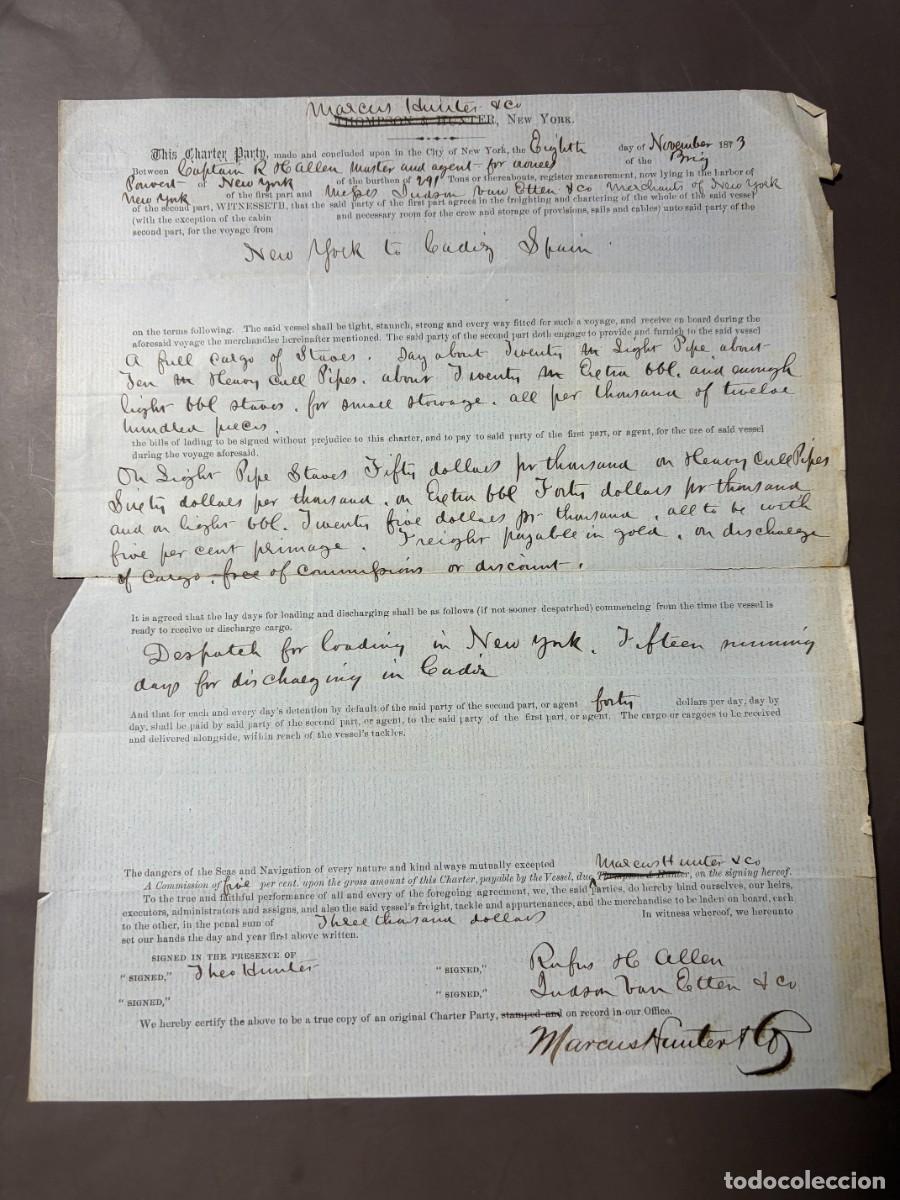 Marcus Hunter & Co
THOMPSON & HUNTER, NEW YORK.
This Charter Party, made and concluded upon in the City of New York, the Eighth day of November 1873
Between Captain R H Allen Master and agent for owners of the Brig
of New York of the burthen of 291 Tons or thereabouts, register measurement, now lying in the harbor of
New York of the first part and Messrs Judson Van Etten & Co Merchants of New York
of the second part, WITNESSETH, that the said party of the first part agrees in the freighting and chartering of the whole of the said vessel
(with the exception of the cabin and necessary room for the crew and storage of provisions, sails and cables) unto said party of the
second part, for the voyage from
New York to Cadiz Spain
on the terms following. The said vessel shall be tight, staunch, strong and every way fitted for such a voyage, and receive on board during the
aforesaid voyage the merchandise hereinafter mentioned. The said party of the second part doth engage to provide and furnish to the said vessel
A full cargo of Staves. Say about Twenty M Light Pipe about
Ten M Heavy Cull Pipes. about Twenty M Extra bbl. and enough
light bbl staves. for small stowage. all per thousand of twelve
hundred pieces.
the bills of lading to be signed without prejudice to this charter, and to pay to said party of the first part, or agent, for the use of said vessel
during the voyage aforesaid.
On Light Pipe Staves Fifty dollars pr thousand on Heavy Cull Pipes
Sixty dollars per thousand. on Extra bbl Forty dollars pr thousand
and on light bbl. Twenty five dollars pr thousand. all to be with
five per cent primage. Freight payable in gold. on discharge
of cargo. free of commissions or discount.
It is agreed that the lay days for loading and discharging shall be as follows (if not sooner despatched) commencing from the time the vessel is
ready to receive or discharge cargo.
Despatch for loading in New York. Fifteen running
days for discharging in Cadiz
And that for each and every day's detention by default of the said party of the second part, or agent forty dollars per day, day by
day, shall be paid by said party of the second part, or agent, to the said party of the first part, or agent. The cargo or cargoes to be received
and delivered alongside, within reach of the vessel's tackles.
The dangers of the Seas and Navigation of every nature and kind always mutually excepted
Marcus Hunter & Co
A Commission of five per cent. upon the gross amount of this Charter, payable by the Vessel, due Thompson & Hunter, on the signing hereof.
To the true and faithful performance of all and every of the foregoing agreement, we, the said parties, do hereby bind ourselves, our heirs,
executors, administrators and assigns, and also the said vessel's freight, tackle and appurtenances, and the merchandise to be laden on board, each
to the other, in the penal sum of Three thousand dollars In witness whereof, we hereunto
set our hands the day and year first above written.
SIGNED IN THE PRESENCE OF
"SIGNED," Theo Hunter "SIGNED," Rufus H Allen
"SIGNED," "SIGNED," Judson Van Etten & Co
We hereby certify the above to be a true copy of an original Charter Party, stamped and on record in our Office.
Marcus Hunter & Co
todocoleccion